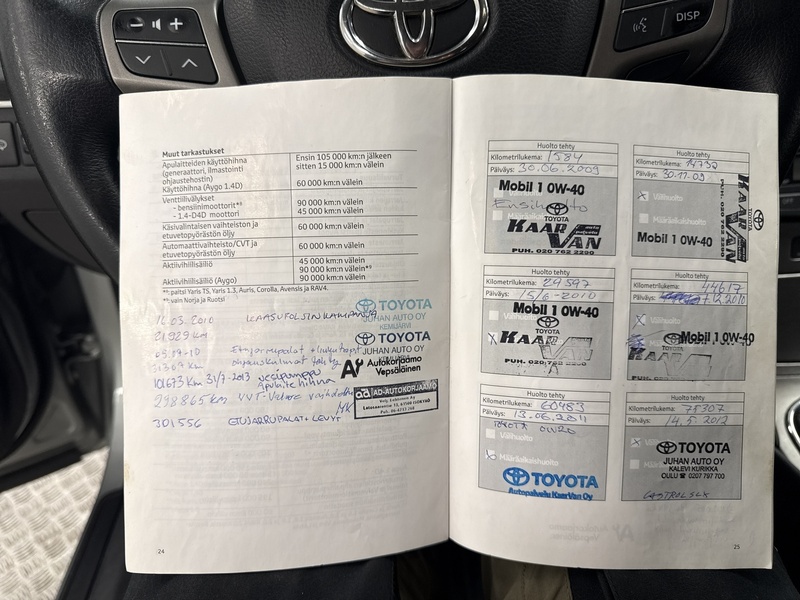 DISP
Muut tarkastukset
Apulaitteiden käyttöhihna
(generaattori, ilmastointi
ohjaustehostin)
Ensin 105 000 km:n jälkeen
sitten 15 000 km:n välein
Käyttöhihna (Aygo 1.4D)
60 000 km:n välein
Venttiilivälykset
- bensiinimoottorit*¹
90 000 km:n välein
- 1.4-D4D moottori
45 000 km:n välein
Käsivalintaisen vaihteiston ja
etuvetopyörästön öljy
60 000 km:n välein
Automaattivaihteisto/CVT ja
etuvetopyörästön öljy
60 000 km:n välein
Aktiivihiilisäiliö
45 000 km:n välein
90 000 km:n välein*²
Aktiivihiilisäiliö (Aygo)
90 000 km:n välein
*¹: paitsi Yaris TS, Yaris 1.3, Auris, Corolla, Avensis ja RAV4.
*²: vain Norja ja Ruotsi
TOYOTA
JUHAN AUTO OY
KEMIJÄRVI
16.03.2010
21929 km
TOYOTA
JUHAN AUTO OY
Etujarrupalat
101673 km 31/7-2013 vesipumppu
apulaite hihna
Autokorjaamo
Vepsäläinen
298865 km VVT-
ad AD-AUTOKORJAAMO
301556 ETUJARRUPALAT + LEVYT
24
Huolto tehty
Kilometrilukema: 1584
Päiväys: 30.06.2009
Mobil 1 0W-40
Ensihuolto
TOYOTA
KAAR VAN
PUH. 020 762 2290
Huolto tehty
Kilometrilukema: 14732
Päiväys: 30.11.09
Välihuolto
Määräaikaishuolto
Mobil 1 0W-40
KAAR VAN
PUH. 020 762 2290
TOYOTA
Huolto tehty
Kilometrilukema: 29597
Päiväys: 15/6-2010
Mobil 1 0W-40
TOYOTA
KAAR VAN
Huolto tehty
Kilometrilukema: 44617
Päiväys:
Mobil 1 0W-40
TOYOTA
KAAR VAN
Huolto tehty
Kilometrilukema: 60483
Päiväys: 13.06.2011
0W20
Välihuolto
Määräaikaishuolto
TOYOTA
Autopalvelu KaarVan Oy
Huolto tehty
Kilometrilukema: 75307
Päiväys: 14.5.2012
TOYOTA
JUHAN AUTO OY
KALEVI KURIKKA
OULU ☎ 0207 797 700
CASTROL SLX
25